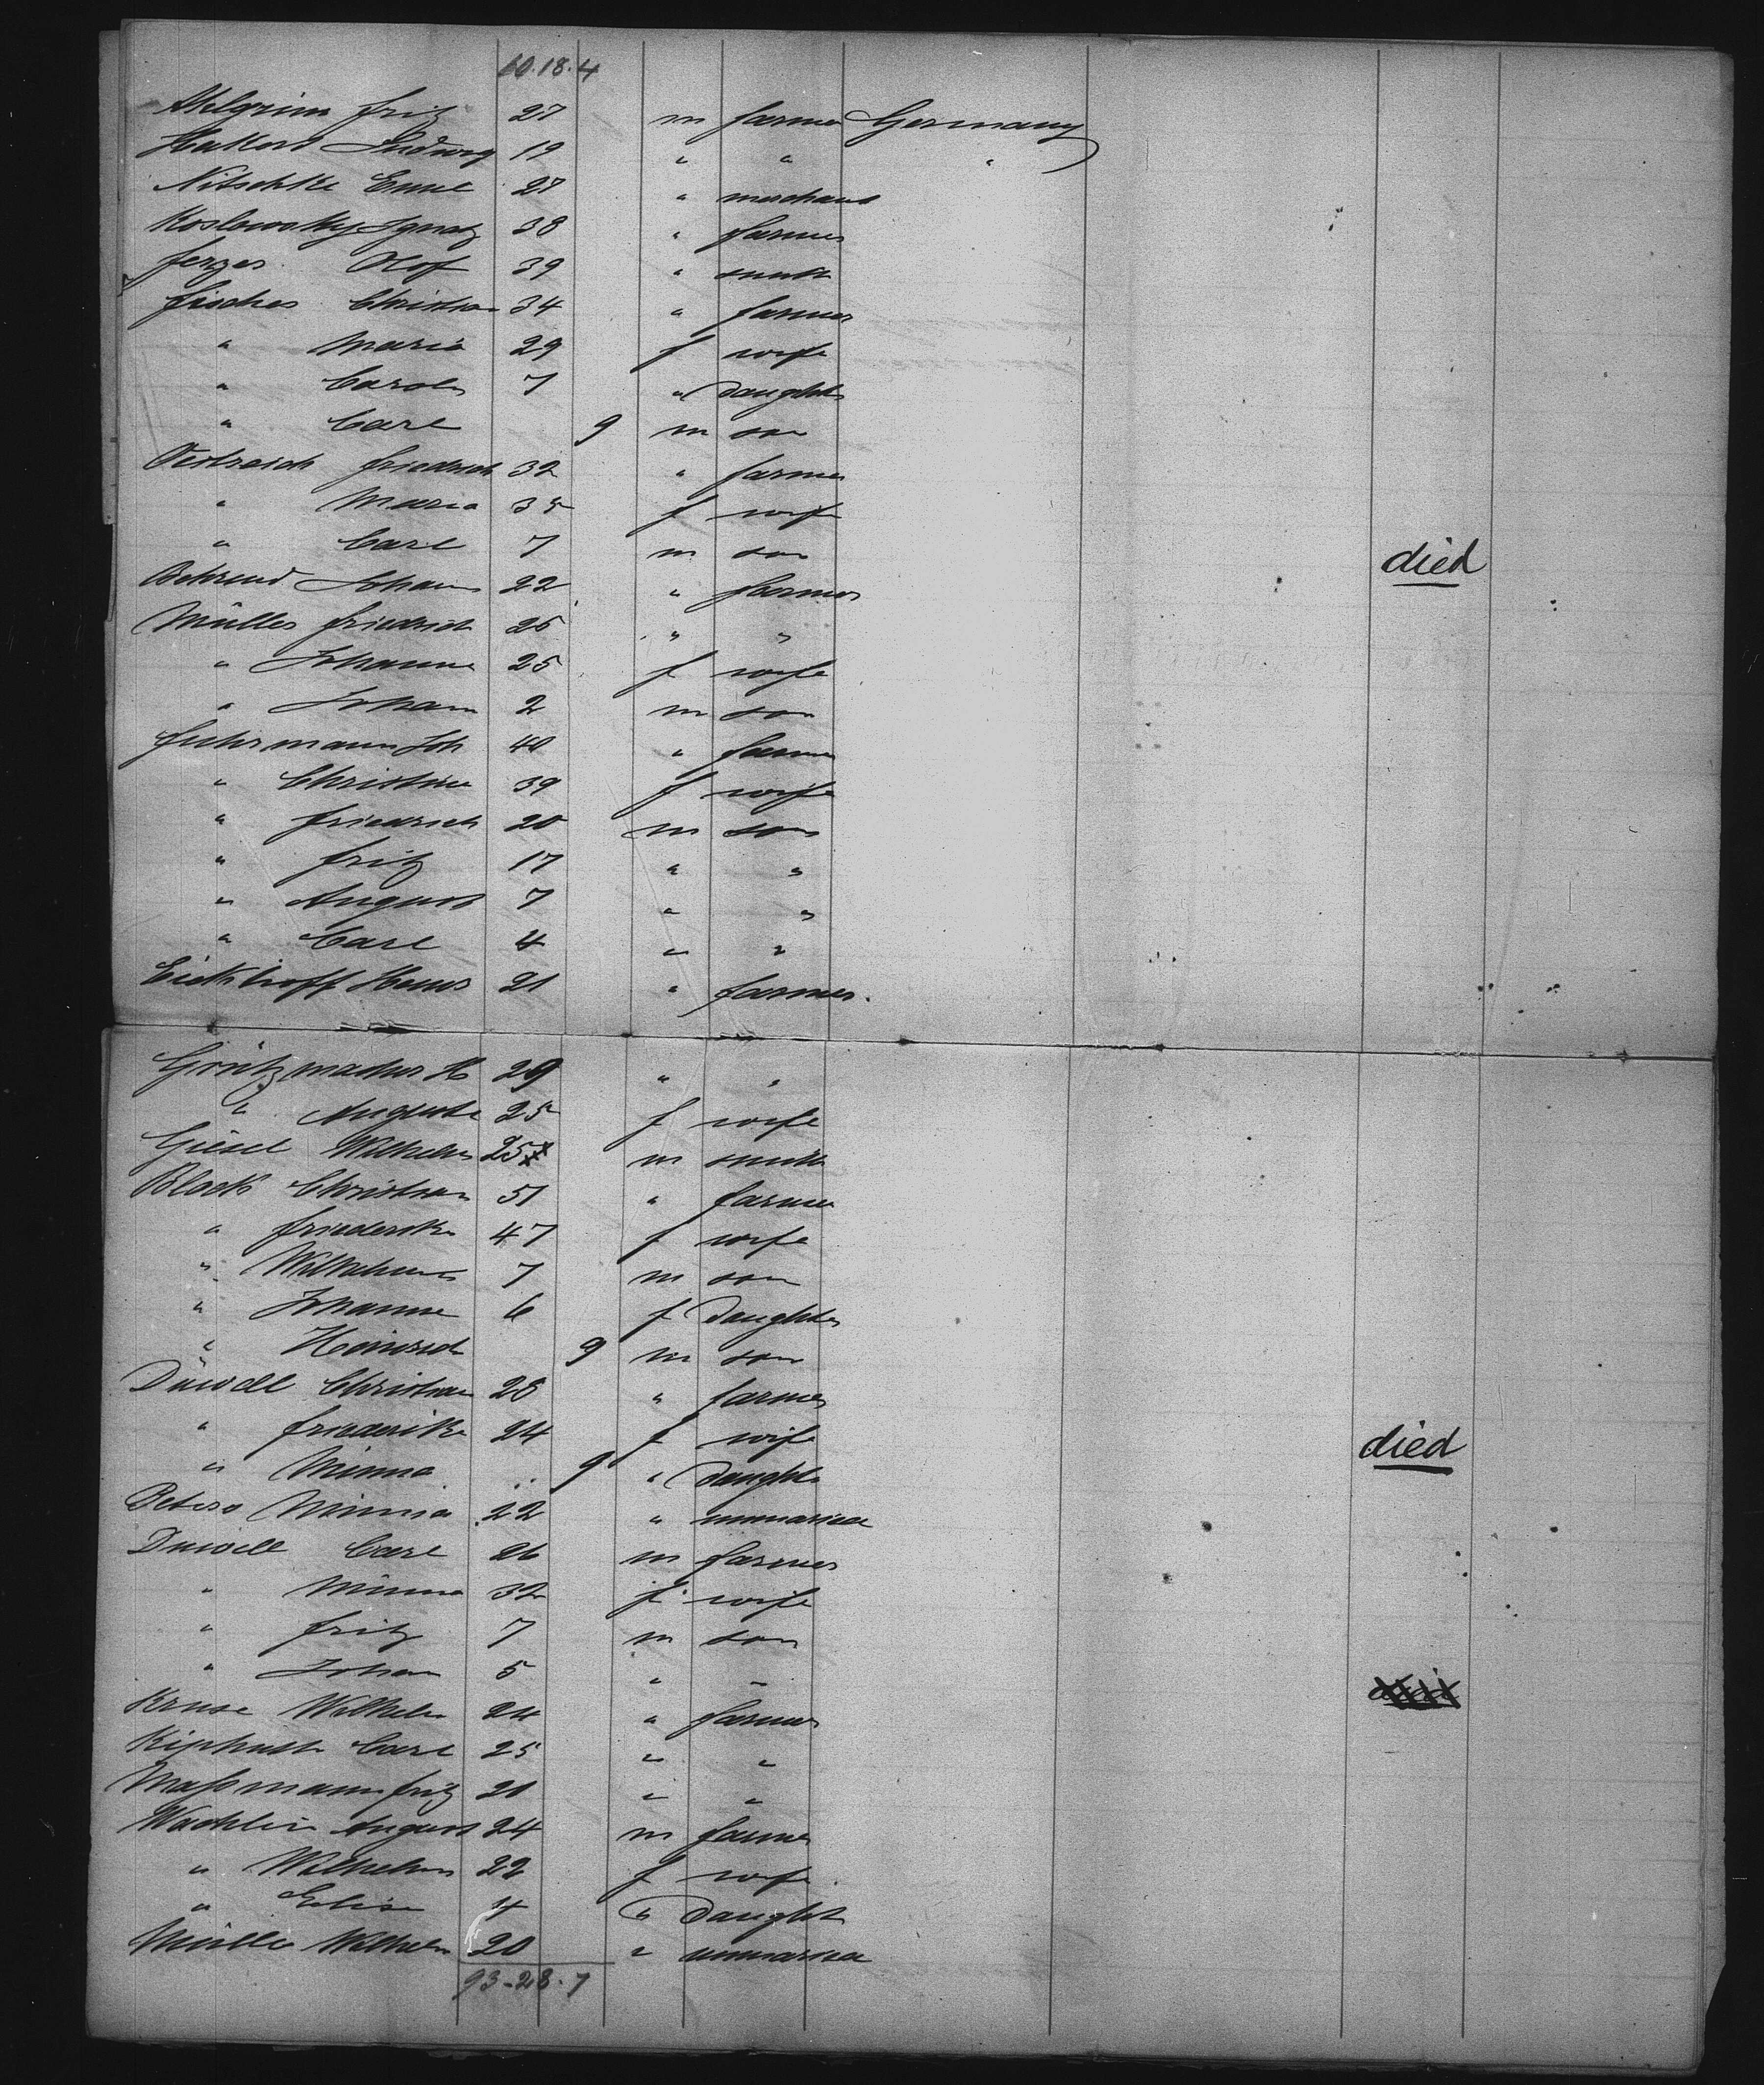 60.18.4
Ahlgrim Fritz 27 m farmer Germany
Ludwig 19 " " "
Nitschke Emil 27 " merchant
Koslowsky Ignatz 38 " farmer
Olof 39 " smith
Fischer Christian 34 " farmer
" Maria 29 f wife
" Carol 7 " daughter
" Carl 9 m son
Oestreich Friedrich 32 " farmer
" Maria 35 f wife
" Carl 7 m son died
Behrend Johann 22 " farmer
Müller Friedrich 25 " "
" Johanne 25 f wife
" Johann 2 m son
Fuhrmann Joh 40 " farmer
" Christine 39 f wife
" Friedrich 20 m son
" Fritz 17 " "
" August 7 " "
" Carl 4 " "
Eickhoff Hans 21 " farmer.
Grützmacher H 29 " "
" Auguste 25 f wife
Giesel Wilhelm 25 m smith
Block Christian 51 " farmer
" Friederike 47 f wife
" Wilhelm 7 m son
" Johanne 6 f daughter
" Heinrich 9 m son
Düwell Christian 28 " farmer
" Friederike 24 f wife
" Minna 9 " daughter died
Peters Minna 22 " unmarried
Duwell Carl 26 m farmer
" Minna 32 f wife
" Fritz 7 m son
" Johan 5 " "
Kruse Wilhelm 24 " farmer
Carl 25 " "
Maßmann Fritz 20 " "
Wachlin August 24 m farmer
" Wilhelm 22 f wife
" Elise 4 " daught
Müller Wilhelm 20 " unmarried
93-28.7